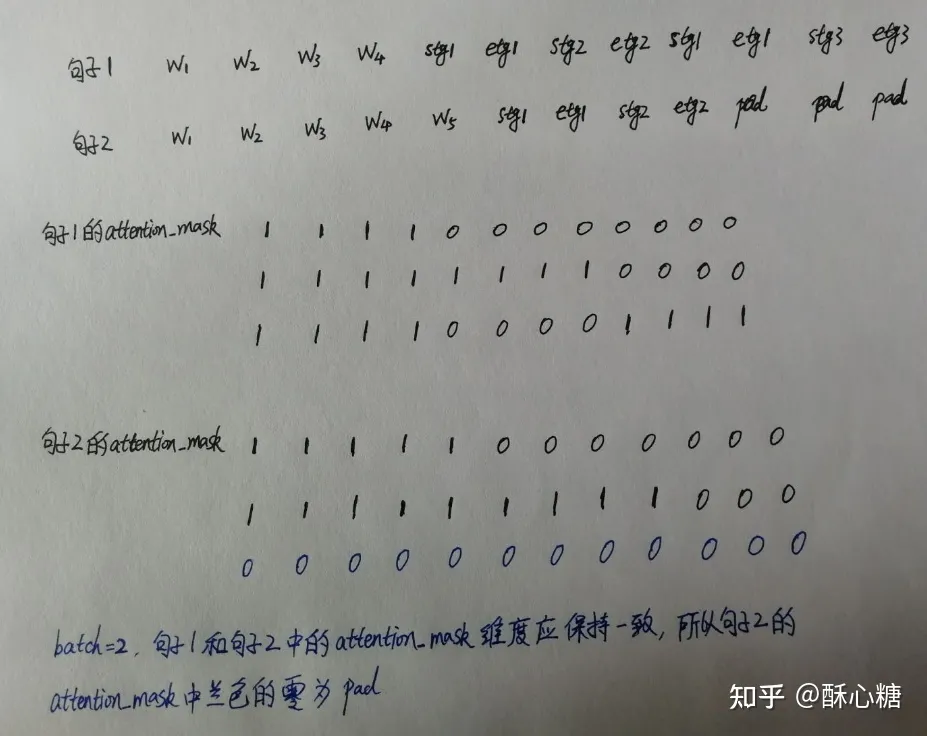 句子1 W1 W2 W3 W4 stg1 etg1 stg2 etg2 stg1 etg1 stg3 etg3
句子2 W1 W2 W3 W4 W5 stg1 etg1 stg2 etg2 pad pad pad
句子1的attention_mask 1 1 1 1 0 0 0 0 0 0 0 0
1 1 1 1 1 1 1 1 0 0 0 0
1 1 1 1 0 0 0 0 1 1 1 1
句子2的attention_mask 1 1 1 1 1 0 0 0 0 0 0 0
1 1 1 1 1 1 1 1 1 0 0 0
0 0 0 0 0 0 0 0 0 0 0 0
batch=2, 句子1和句子2中的attention_mask维度应保持一致,所以句子2的
attention_mask中兰色的零为pad
知乎 @酥心糖